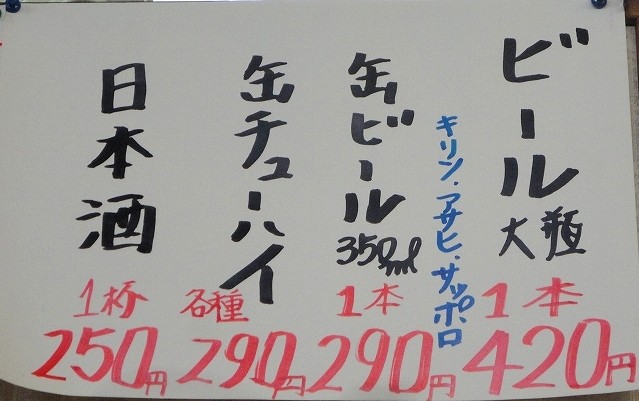 ビール大瓶
1本
420円
キリン・アサヒ・サッポロ
缶ビール350ml
1本
290円
缶チューハイ
各種
290円
日本酒
1杯
250円